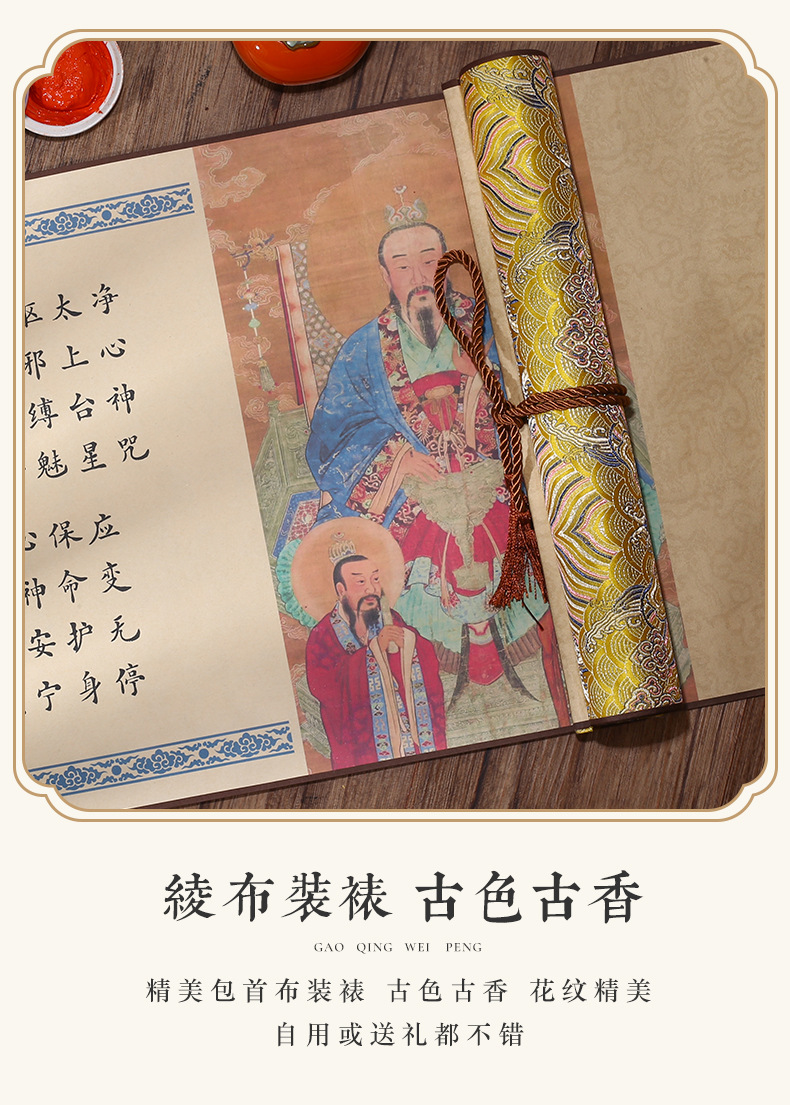 净心神咒
应变无停
太上台星
保命护身
邪缚魅
心神安宁
綾布装裱 古色古香
GAO QING WEI PENG
精美包首布装裱 古色古香 花纹精美
自用或送礼都不错